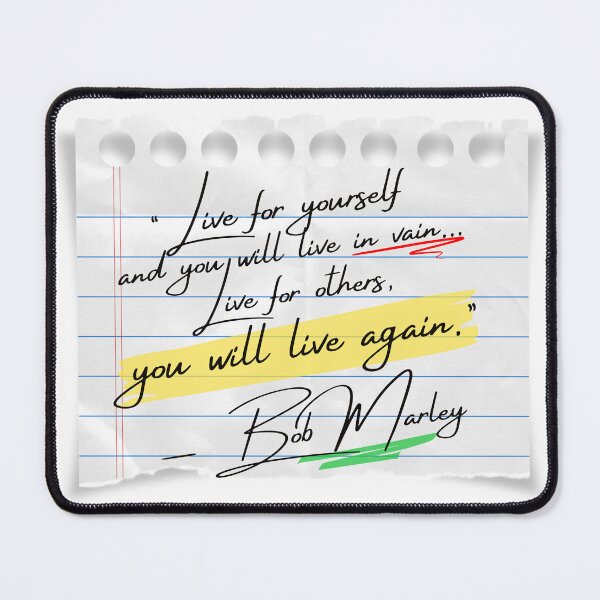 “Live for yourself
and you will live in vain...
Live for others,
you will live again.”
— Bob Marley